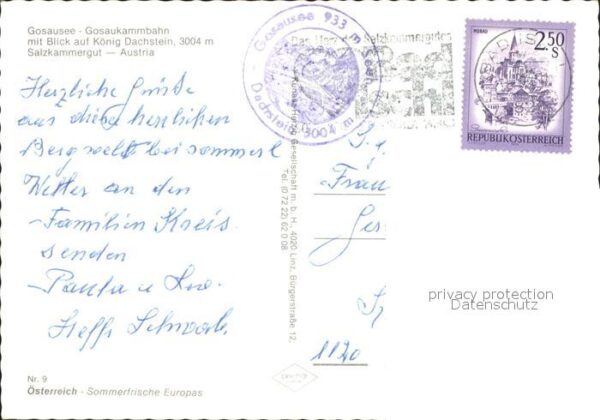 Gosausee - Gosaukammbahn
mit Blick auf König Dachstein, 3004 m
Salzkammergut — Austria
Herzliche Grüße
aus dieser herrlichen
Bergwelt bei sommerl
Wetter an den
Familien Kreis.
senden
Gosausee 933 m
Dachstein 3004 m
Das Herz des Salzkammergutes
Bad
Ischl
MURAU
2.50
S
REPUBLIK ÖSTERREICH
Gesellschaft m. b. H., 4020 Linz, Bürgerstraße 12,
Tel. (0 72 22) 62 0 08
Frau
1120
privacy protection
Datenschutz
Nr. 9
Österreich - Sommerfrische Europas